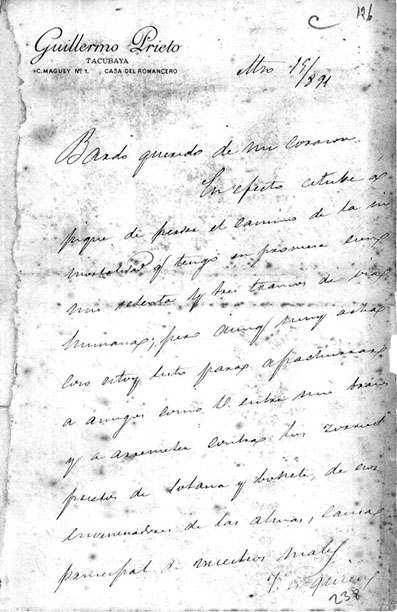 C
126
Guillermo Prieto
TACUBAYA
C. MAGUEY Nº 1. CASA DEL ROMANCERO
Mzo 15/891
Bardo querido de mi corazon.
En efecto estube a
pique de perder el camino de la in
mortalidad q tengo en promesa
mis setenta y tres tramos de vias
humanas, pero aunq muy
estoy listo para apachurrar
a amigos como U. entre mis brazos
y a arremeter contra los
prietos de sotana y bonete, de esos
envenenadores de las almas, causa
principal de nuestros males
238